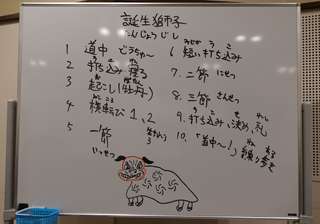 誕生獅子
たんじょうじし
1 道中 どうちゅ〜
2 打ち込み 寝る
3 起こし(牡丹)
4 横転び 1、2
5 一節
いっせつ
6 短い打ち込み
7. 二節 にせつ
8. 三節 さんせつ
9. 打ち込み、決め、礼
10. 「道中〜!」練り歩き